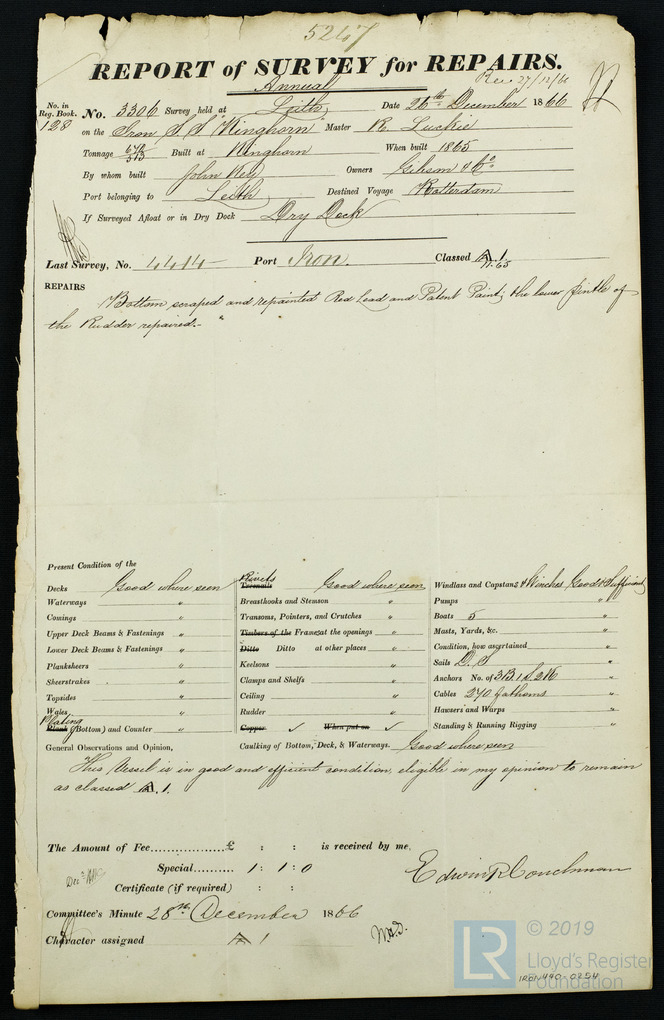 5247
REPORT of SURVEY for REPAIRS.
Annual
Rec 27/12/66
No. in Reg. Book. No. 3306 Survey held at Leith Date 26th December 1866
128 on the Iron S.S. "Kinghorn" Master R. Luckie
Tonnage 572/513 Built at Kinghorn When built 1865
By whom built John Key Owners Gibson & Co
Port belonging to Leith Destined Voyage Rotterdam
If Surveyed Afloat or in Dry Dock Dry Dock
Last Survey, No. 4414 Port Iron. Classed A 1
11.65
REPAIRS
Bottom scraped and repainted Red Lead and Patent Paint; the lower pintle of
the Rudder repaired.-
Present Condition of the
Decks Good where seen
Waterways "
Comings "
Upper Deck Beams & Fastenings "
Lower Deck Beams & Fastenings "
Planksheers "
Sheerstrakes . "
Topsides "
Wales "
Plating
Plank (Bottom) and Counter "
Rivets
Treenails Good where seen
Breasthooks and Stemson "
Transoms, Pointers, and Crutches "
Timbers of the Frames at the openings "
Ditto Ditto at other places "
Keelsons "
Clamps and Shelfs "
Ceiling "
Rudder "
Copper ✓ When put on ✓
Windlass and Capstans & Winches Good & Sufficient
Pumps "
Boats 5 "
Masts, Yards, &c. "
Condition, how ascertained "
Sails D. S "
Anchors No. of 3B. 1 S. 2K "
Cables 270 fathoms "
Hawsers and Warps "
Standing & Running Rigging "
General Observations and Opinion, Caulking of Bottom, Deck, & Waterways. Good where seen
This Vessel is in good and efficient condition, eligible in my opinion to remain
as classed A. 1.
The Amount of Fee................£ : : is received by me,
Special.......... 1 : 1 : 0
Edwin R Couchman
Certificate (if required) : :
Committee's Minute 28th December 1866
Character assigned A 1
© 2019
LR Lloyd's Register
Foundation
IRON 440-0254